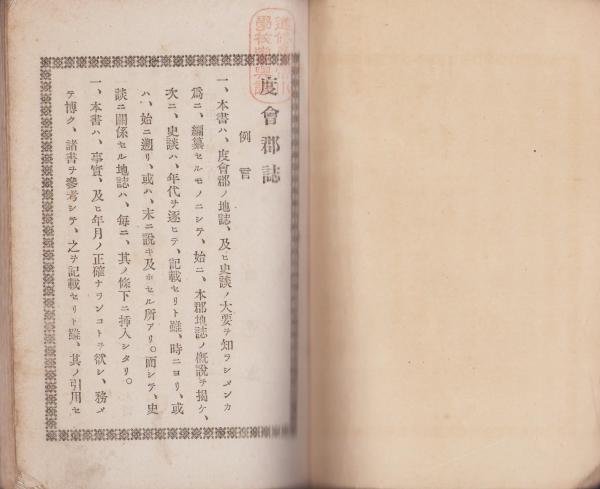 度會郡誌
例言
一、本書ハ、度會郡ノ地誌、及ヒ史談ノ大要ヲ知ラシメンカ
爲ニ、編纂セルモノニシテ、始ニ、本郡地誌ノ槪說ヲ揭ケ、
次ニ、史談ハ、年代ヲ逐ヒテ、記載セリト雖、時ニヨリ、或
ハ、始ニ遡リ、或ハ、末ニ說キ及ホセル所アリ。而シテ、史
談ニ關係セル地誌ハ、每ニ、其ノ條下ニ挿入シタリ。
一、本書ハ、事實、及ヒ年月ノ正確ナランコトヲ欲シ、務メ
テ博ク、諸書ヲ參考シテ、之ヲ記載セリト雖、其ノ引用セ